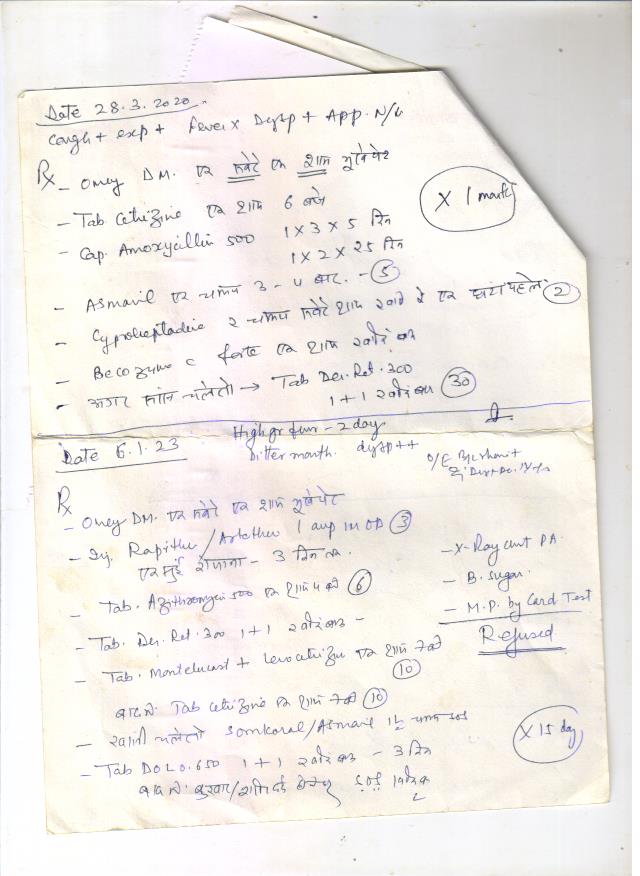 Date 28.3.2020
Cough + exp + Fever x Dysp + App. N/
Rx - Omey DM. एक सवेरे एक शाम भूखे पेट
- Tab Cetrizine एक शाम 6 बजे
X 1 month
- Cap. Amoxycillin 500 1 x 3 x 5 दिन
1 x 2 x 25 दिन
- Asmavil एक चम्मच 3-4 बार. - 5
- Cyproheptadine 2 चम्मच सवेरे शाम खाने से एक घण्टा पहले 2
- Becozyme c forte एक शाम खाने बाद
- अगर सांस चले तो → Tab Deri.Ret.300
1+1 खाने बाद 30
Date 6.1.23
High gr fever - 2 day
Bitter mouth. dysp ++
O/E
Rx
- Omey DM. एक सवेरे एक शाम भूखे पेट
- Inj. Rapither / Artether 1 amp IM OD 3
एक सुई रोजाना - 3 दिन तक.
- X-Ray chest PA
- B. Sugar
- M.P. by Card Test
Refused
- Tab. Azithromycin 500 एक शाम 4 बजे 6
- Tab. Deri.Ret.300 1+1 खाने बाद -
- Tab. Montelucast + Levocetrizine एक शाम 7 बजे
10
बाद में: Tab Cetrizine एक शाम 7 बजे 10
- खांसी चले तो /Asmavil चम्मच SOS
X 15 day
- Tab DOLO.650 1+1 खाने बाद - 3 दिन
बाद में: बुखार/